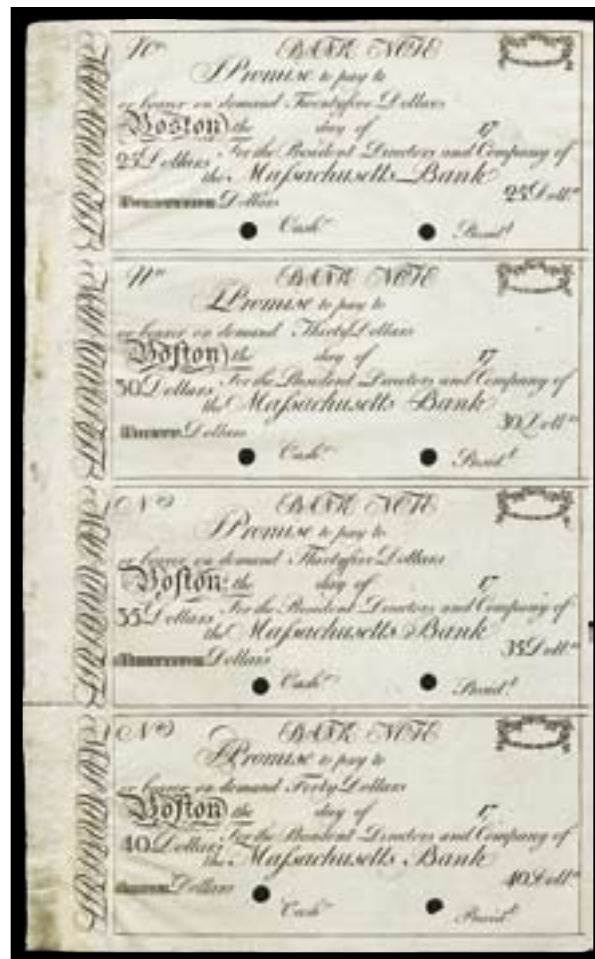 No BANK NOTE
I Promise to pay to
or bearer on demand Twentyfive Dollars
Boston the day of 17
25 Dollars For the President Directors and Company of
the Maſsachusetts Bank
25 Dollrs
TWENTYFIVE Dollars
Cashr Presidt
No BANK NOTE
I Promise to pay to
or bearer on demand Thirty Dollars
Boſton the day of 17
30 Dollars For the President Directors and Company of
the Maſsachusetts Bank
30 Dollrs
THIRTY Dollars
Cashr Presidt
No BANK NOTE
I Promise to pay to
or bearer on demand Thirtyfive Dollars
Boſton the day of 17
35 Dollars For the President Directors and Company of
the Maſsachusetts Bank
35 Dollrs
THIRTYFIVE Dollars
Cashr Presidt
No BANK NOTE
I Promise to pay to
or bearer on demand Forty Dollars
Boſton the day of 17
40 Dollars For the President Directors and Company of
the Maſsachusetts Bank
40 Dollrs
Dollars
Cashr Presidt